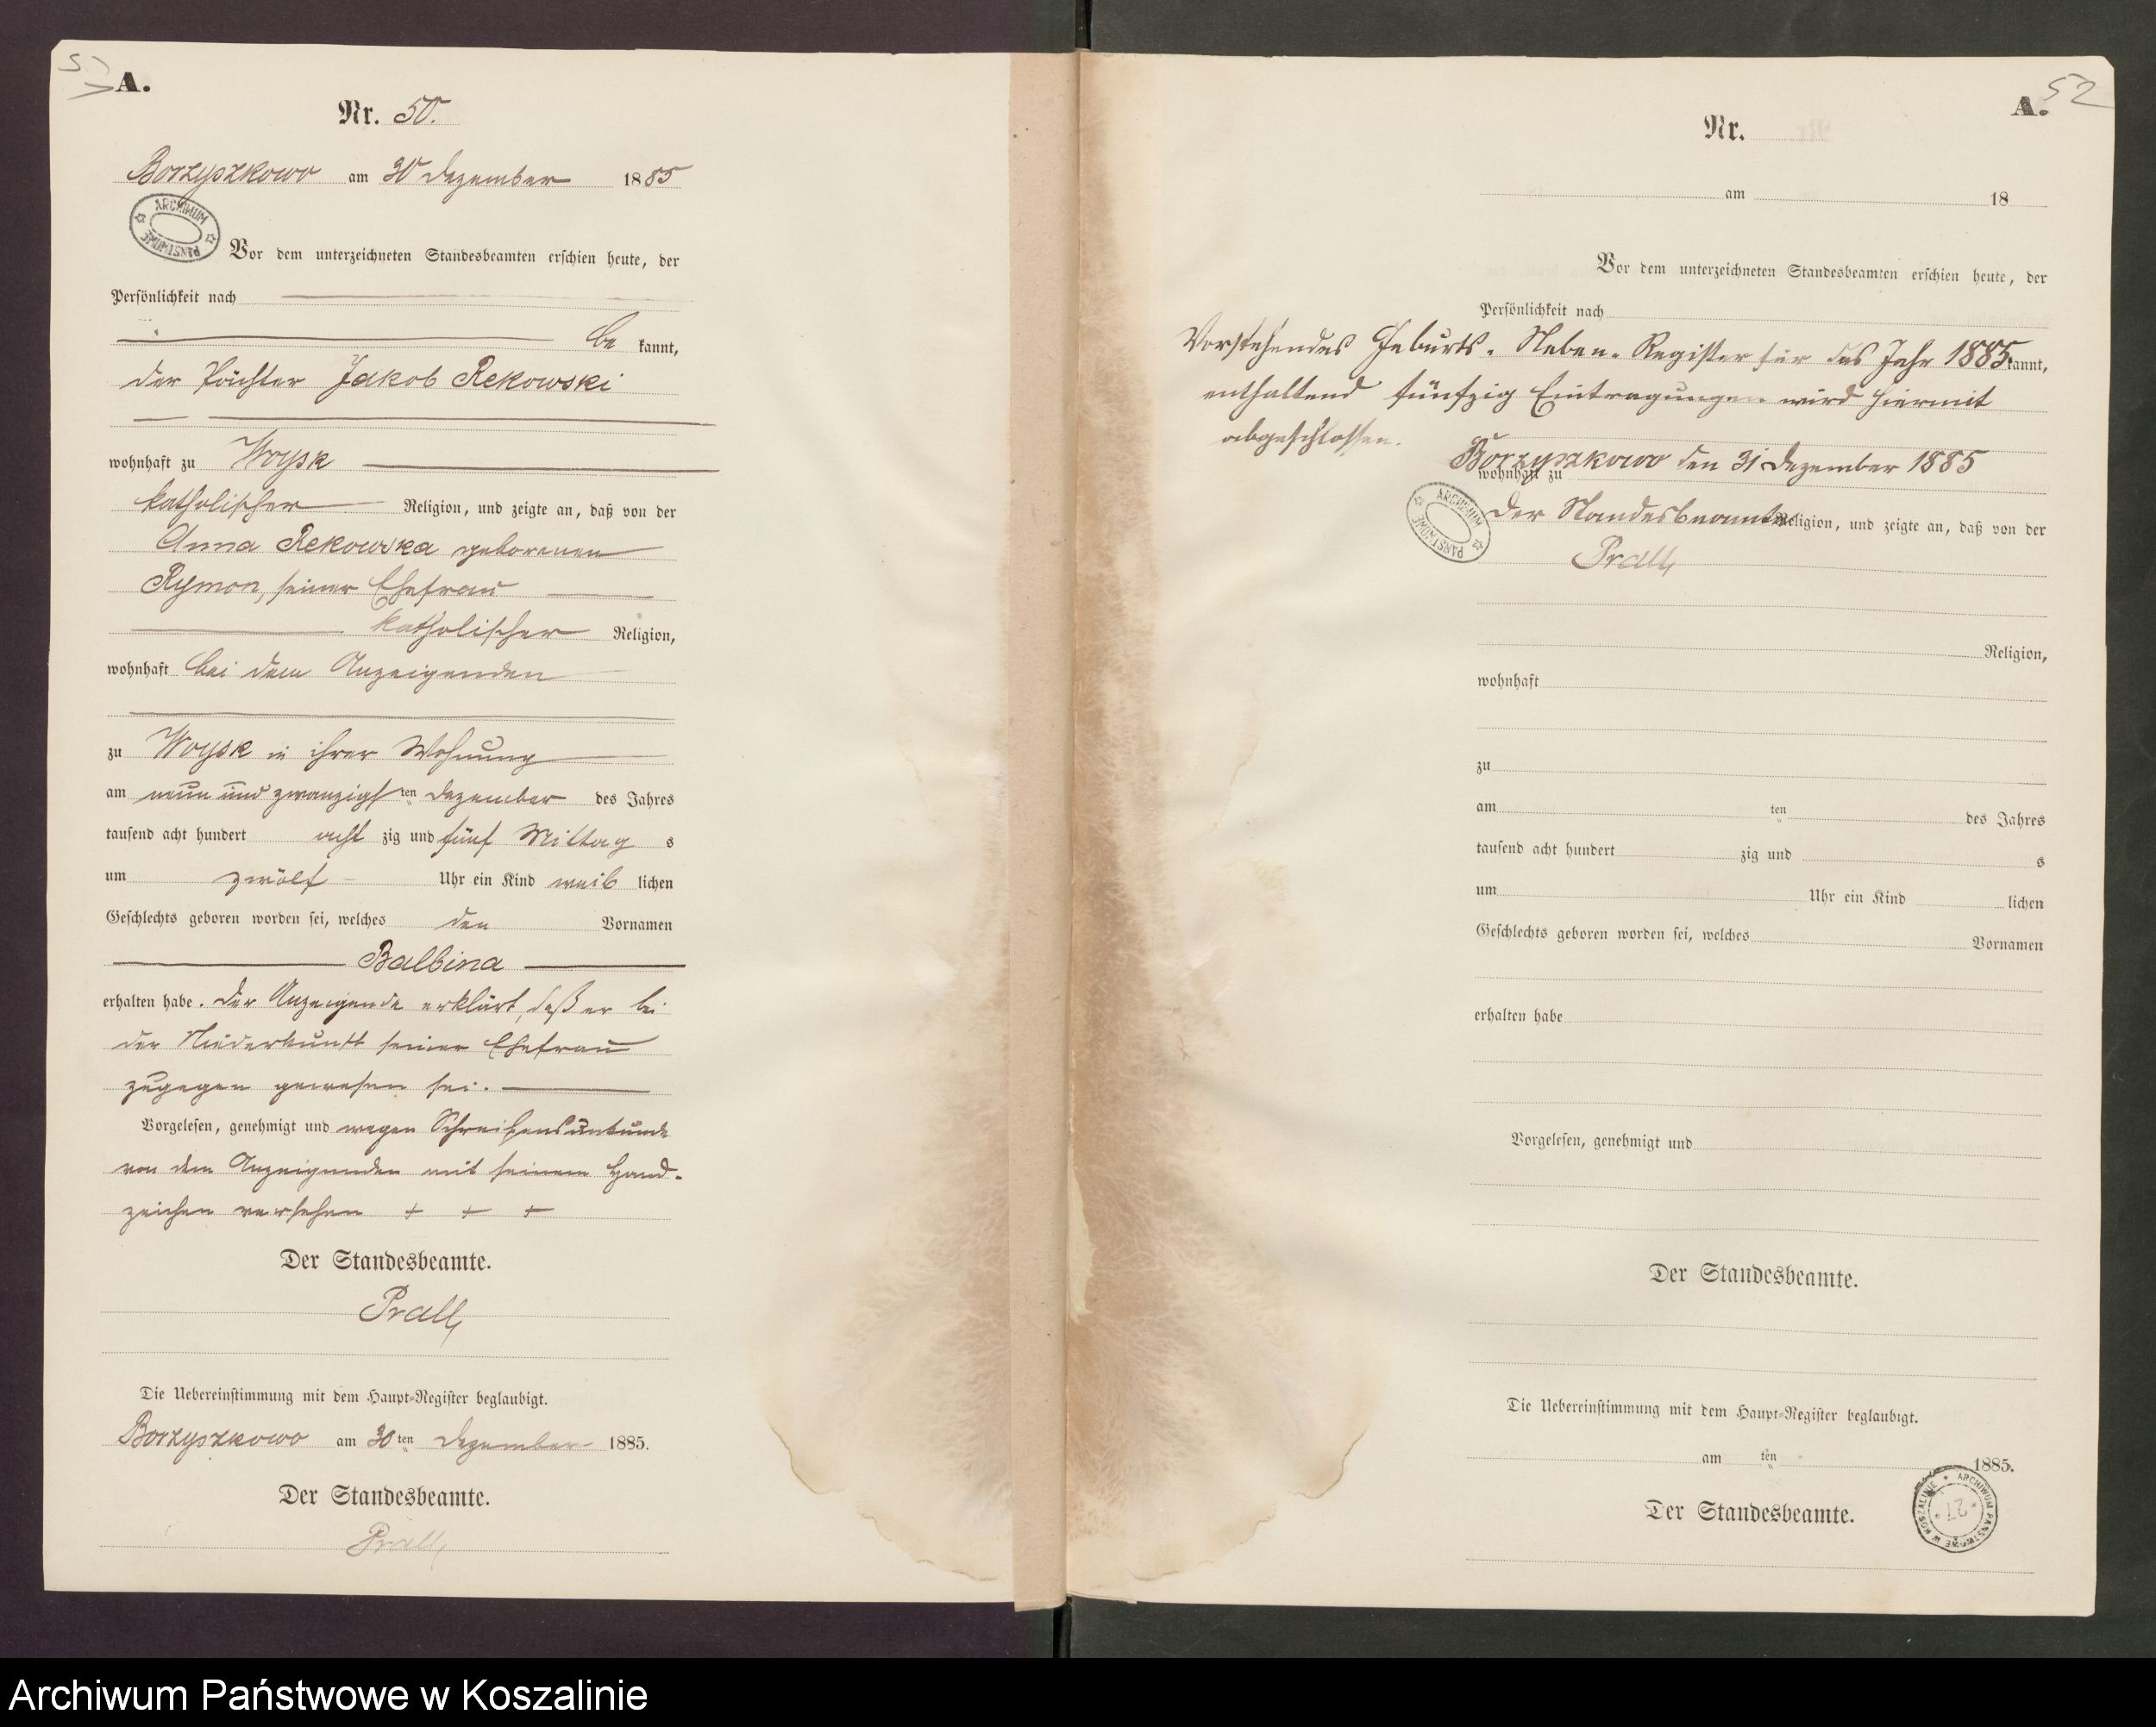 A.
Nr. 50.
Borzyszkowo am 30 Dezember 1885
ARCHIWUM PAŃSTWOWE
Vor dem unterzeichneten Standesbeamten erschien heute, der
Persönlichkeit nach
be kannt,
der Pächter Jakob Rekowski
wohnhaft zu Woysk
katholischer Religion, und zeigte an, daß von der
Anna Rekowska geborenen
Rymon, seiner Ehefrau
katholischer Religion,
wohnhaft bei dem Anzeigenden
zu Woysk in ihrer Wohnung
am neun und zwanzigsten Dezember des Jahres
tausend acht hundert acht zig und fünf Mittag s
um zwölf Uhr ein Kind weib lichen
Geschlechts geboren worden sei, welches den Vornamen
Balbina
erhalten habe. Der Anzeigende erklärt, daß er bei
der Niederkunft seiner Ehefrau
zugegen gewesen sei.
Vorgelesen, genehmigt und wegen Schreibensunkunde
von dem Anzeigenden mit seinem Hand-
zeichen versehen + + +
Der Standesbeamte.
Prall
Die Uebereinstimmung mit dem Haupt-Register beglaubigt.
Borzyszkowo am 30ten Dezember 1885.
Der Standesbeamte.
Prall
52
A.
Nr.
am 18
Vor dem unterzeichneten Standesbeamten erschien heute, der
Persönlichkeit nach
Vorstehendes Geburts-Neben-Register für das Jahr 1885 kannt,
enthaltend fünfzig Eintragungen wird hiermit
abgeschlossen.
Borzyszkowo den 31 Dezember 1885
wohnhaft zu
Der Standesbeamte Religion, und zeigte an, daß von der
ARCHIWUM PAŃSTWOWE
Prall
Religion,
wohnhaft
zu
am ten des Jahres
tausend acht hundert zig und s
um Uhr ein Kind lichen
Geschlechts geboren worden sei, welches Vornamen
erhalten habe
Vorgelesen, genehmigt und
Der Standesbeamte.
Die Uebereinstimmung mit dem Haupt-Register beglaubigt.
am ten 1885.
Der Standesbeamte.
ARCHIWUM PAŃSTWOWE W KOSZALINIE * 27 *
Archiwum Państwowe w Koszalinie